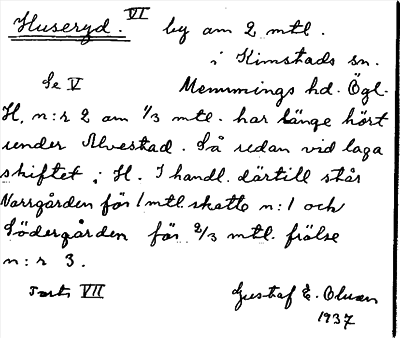 Huseryd. VI by om 2 mtl.
i Kimstads sn.
Se V Memmings hd. Ögl.
H. n:r 2 om 1/3 mtl. har länge hört
under Alvestad. Så redan vid laga
skiftet i H. I handl. därtill står
Norrgården för 1 mtl. skatte n:1 och
Södergården för 2/3 mtl. frälse
n:r 3.
Forts VII Gustaf E. Olsson
1937